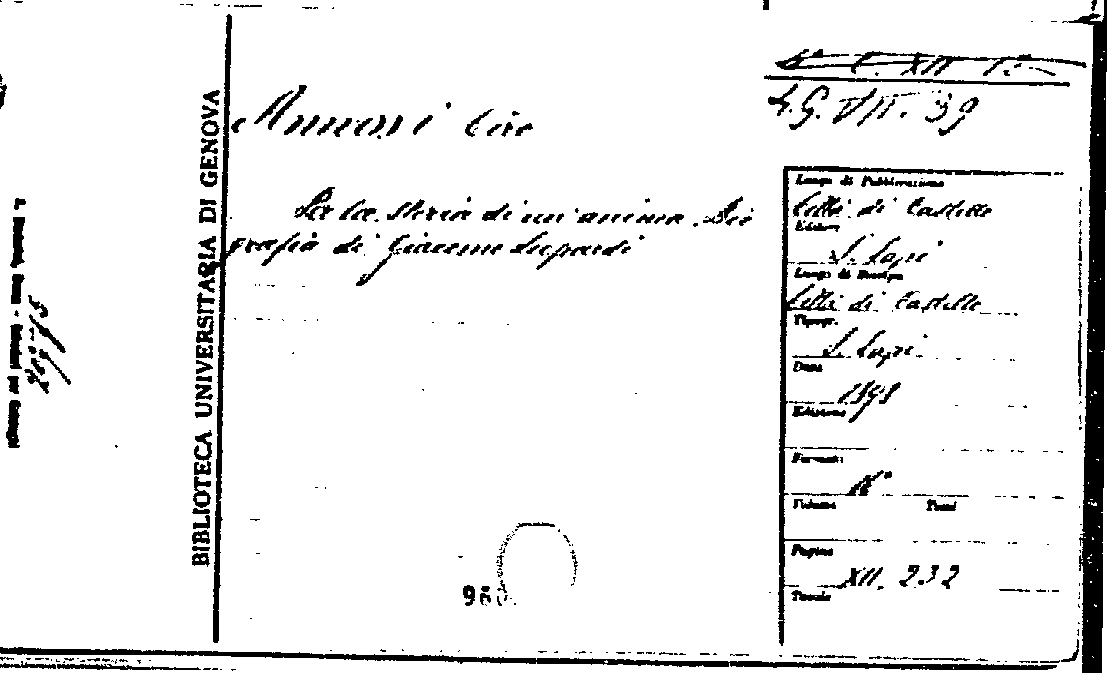 BIBLIOTECA UNIVERSITARIA DI GENOVA
Annovi Ciro
Per la storia di un'anima. Bio
grafia di Giacomo Leopardi
L.G. VII. 39
Luogo di Pubblicazione
Città di Castello
Editore
S. Lapi
Luogo di Stampa
Città di Castello
Tipogr.
S. Lapi
Data
1898
Edizione
Formato
16°
Volume Tomi
Pagine
XII. 232
Tavole